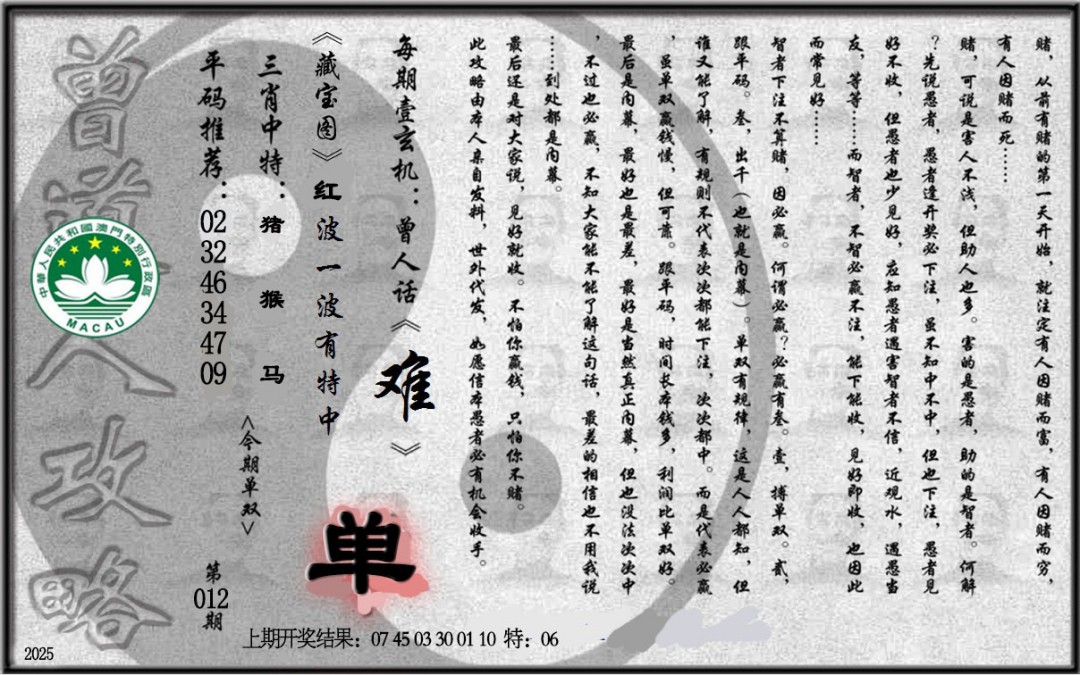 赌，从前有赌的第一天开始，就注定有人因赌而富，有人因赌而穷，
有人因赌而死……
赌，可说是害人不浅，但助人也多。害的是愚者，助的是智者。何解
？先说愚者，愚者逢开奖必下注，虽不知中不中，但也下注，愚者见
好不收，但愚者也少见好，应知愚者遇害智者不信，近观水，遇愚当
友，等等……而智者，不智必赢不注，能下能收，见好即收，也因此
而常见好……
智者下注不算赌，因必赢。何谓必赢？必赢有叁。壹，搏单双。贰，
跟平码。叁，出千（也就是内幕）。单双有规律，这是人人都知，但
谁又能了解，有规则不代表次次都能下注，次次都中。而是代表必赢
，虽单双赢钱慢，但可靠。跟平码，时间长本钱多，利润比单双好。
最后是内幕，最好也是最差，最好是当然真正内幕，但也没法次次中
，不过也必赢，不知大家能不能了解这句话，最差的相信也不用我说
……到处都是内幕。
最后还是对大家说，见好就收。不怕你赢钱，只怕你不赌。
此攻略由本人亲自发料，世外代发，如愿信本愚者必有机会收手。
每期壹玄机：曾人话《难》
《藏宝图》红波一波有特中
单
三肖中特：猪 猴 马
<今期单双>
平码推荐：02 32 46 34 47 09
第012期
曾道人攻略
中華人民共和國澳門特別行政區
MACAU
上期开奖结果：07 45 03 30 01 10 特：06
2025